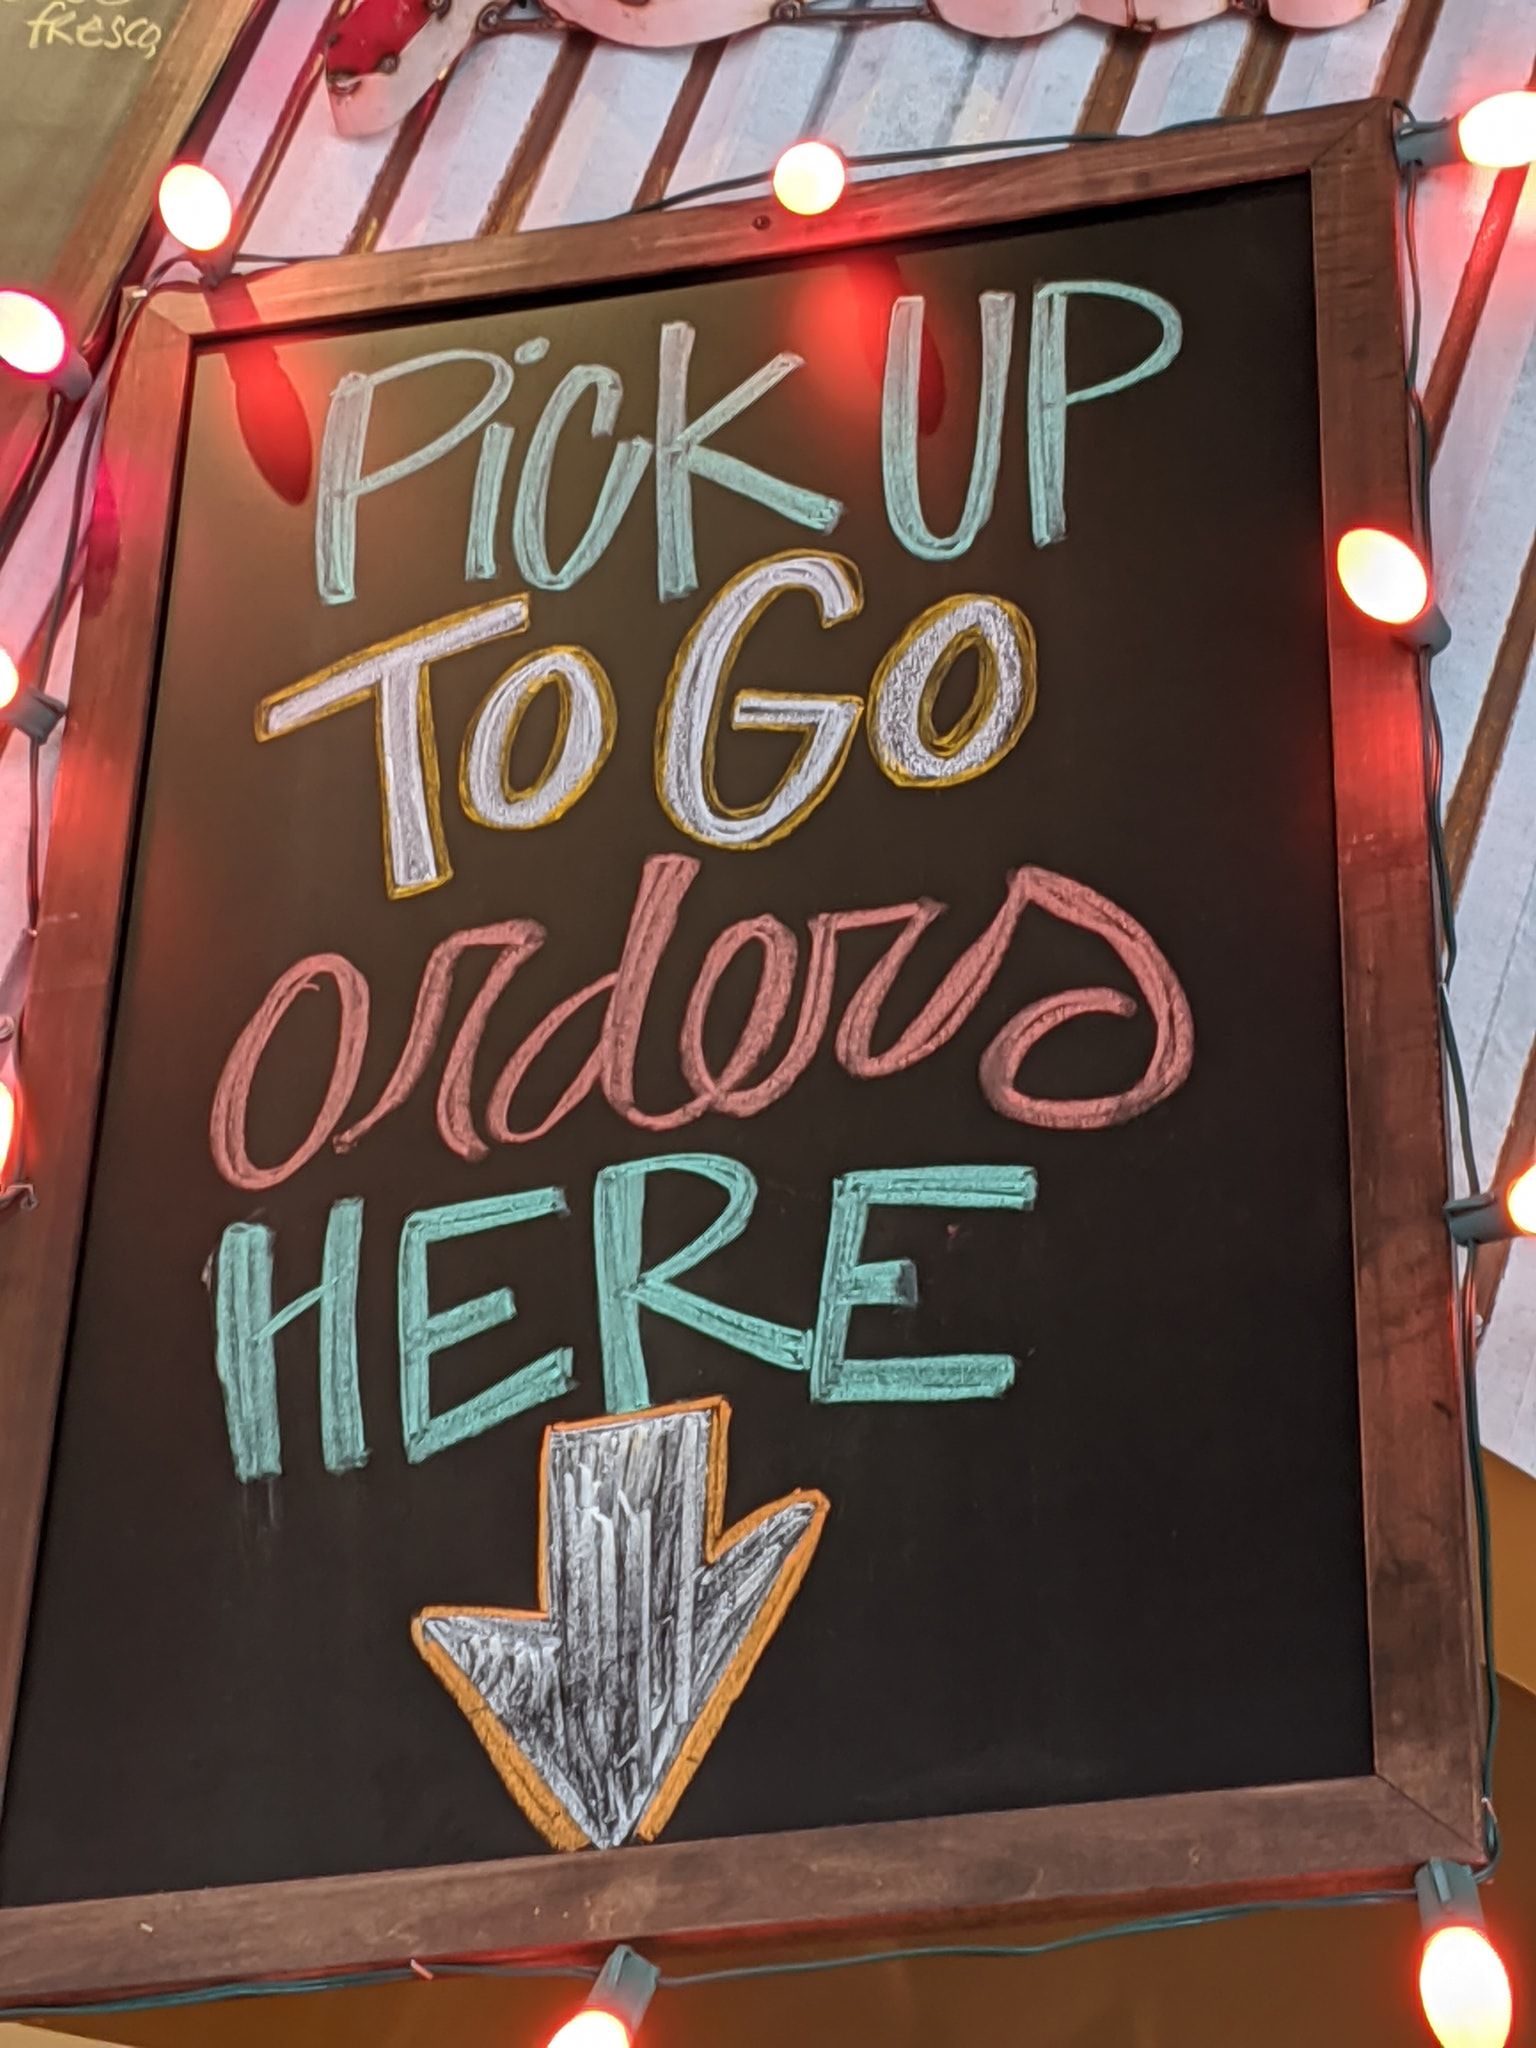 fresca
PiCK UP
To Go
orders
HERE